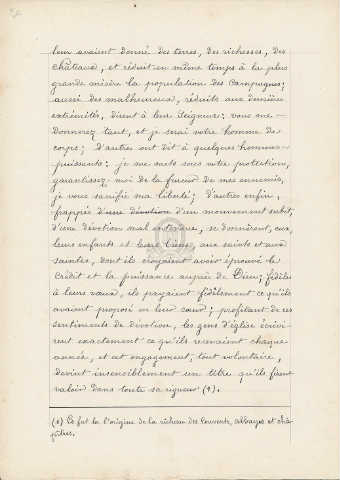 leur avaient donné des terres, des richesses, des
châteaux, et réduit en même temps à la plus
grande misère la population des campagnes;
aussi des malheureux, réduits aux dernières
extrémités, dirent à leur seigneur: vous me
donnerez tant, et je serai votre homme de
corps; D'autres ont dit à quelques hommes
puissants: je me mets sous votre protection,
garantissez-moi de la fureur de mes ennemis,
je vous sacrifie ma liberté; d'autres enfin,
frappés d'une dévotion d'un mouvement subit,
d'une dévotion mal entendue, se donnèrent, eux,
leurs enfants et leurs biens, aux saints et aux
saintes, dont ils croyaient avoir éprouvé le
crédit et la puissance auprès de Dieu; fidèles
à leurs vœux, ils payaient fidèlement ce qu'ils
avaient proposé en leur cœur; profitant de ces
sentiments de dévotion, les gens d'église écrivi-
rent exactement ce qu'ils recevaient chaque
année, et cet engagement, tout volontaire,
devint insensiblement un titre qu'ils firent
valoir dans toute sa rigueur (1).
(1) Ce fut là l'origine de la richesse des Couvents, abbayes et cha-
pitres.